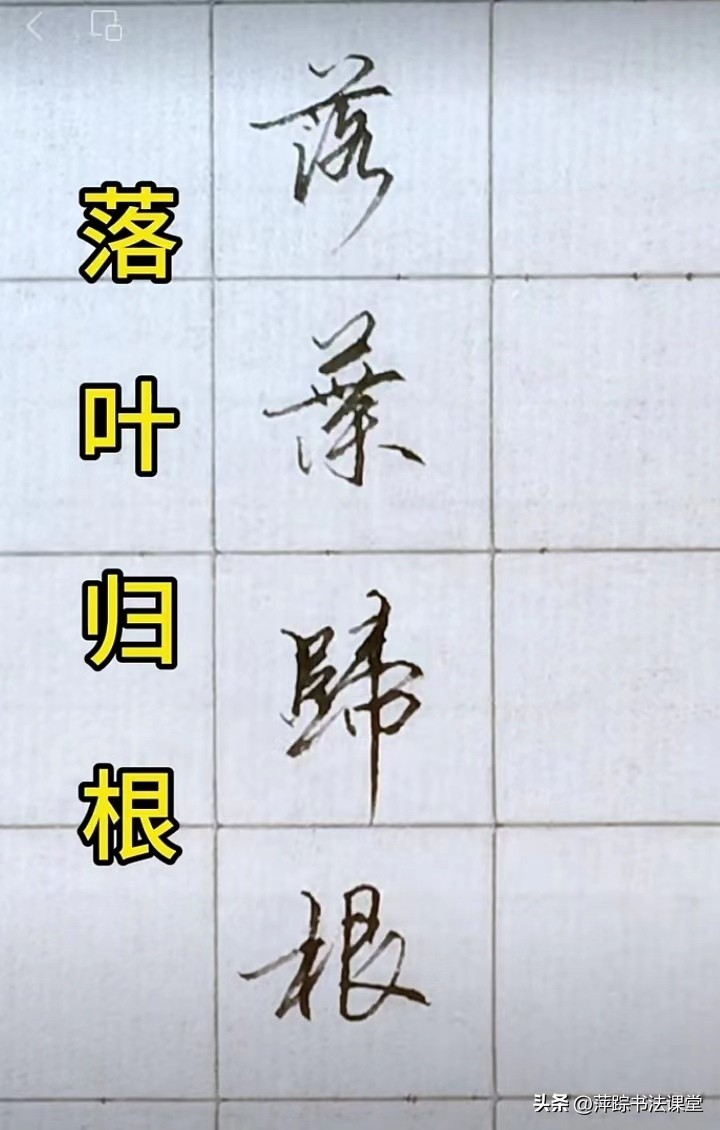 落叶归根
落葉歸根
头条 @萍踪书法课堂